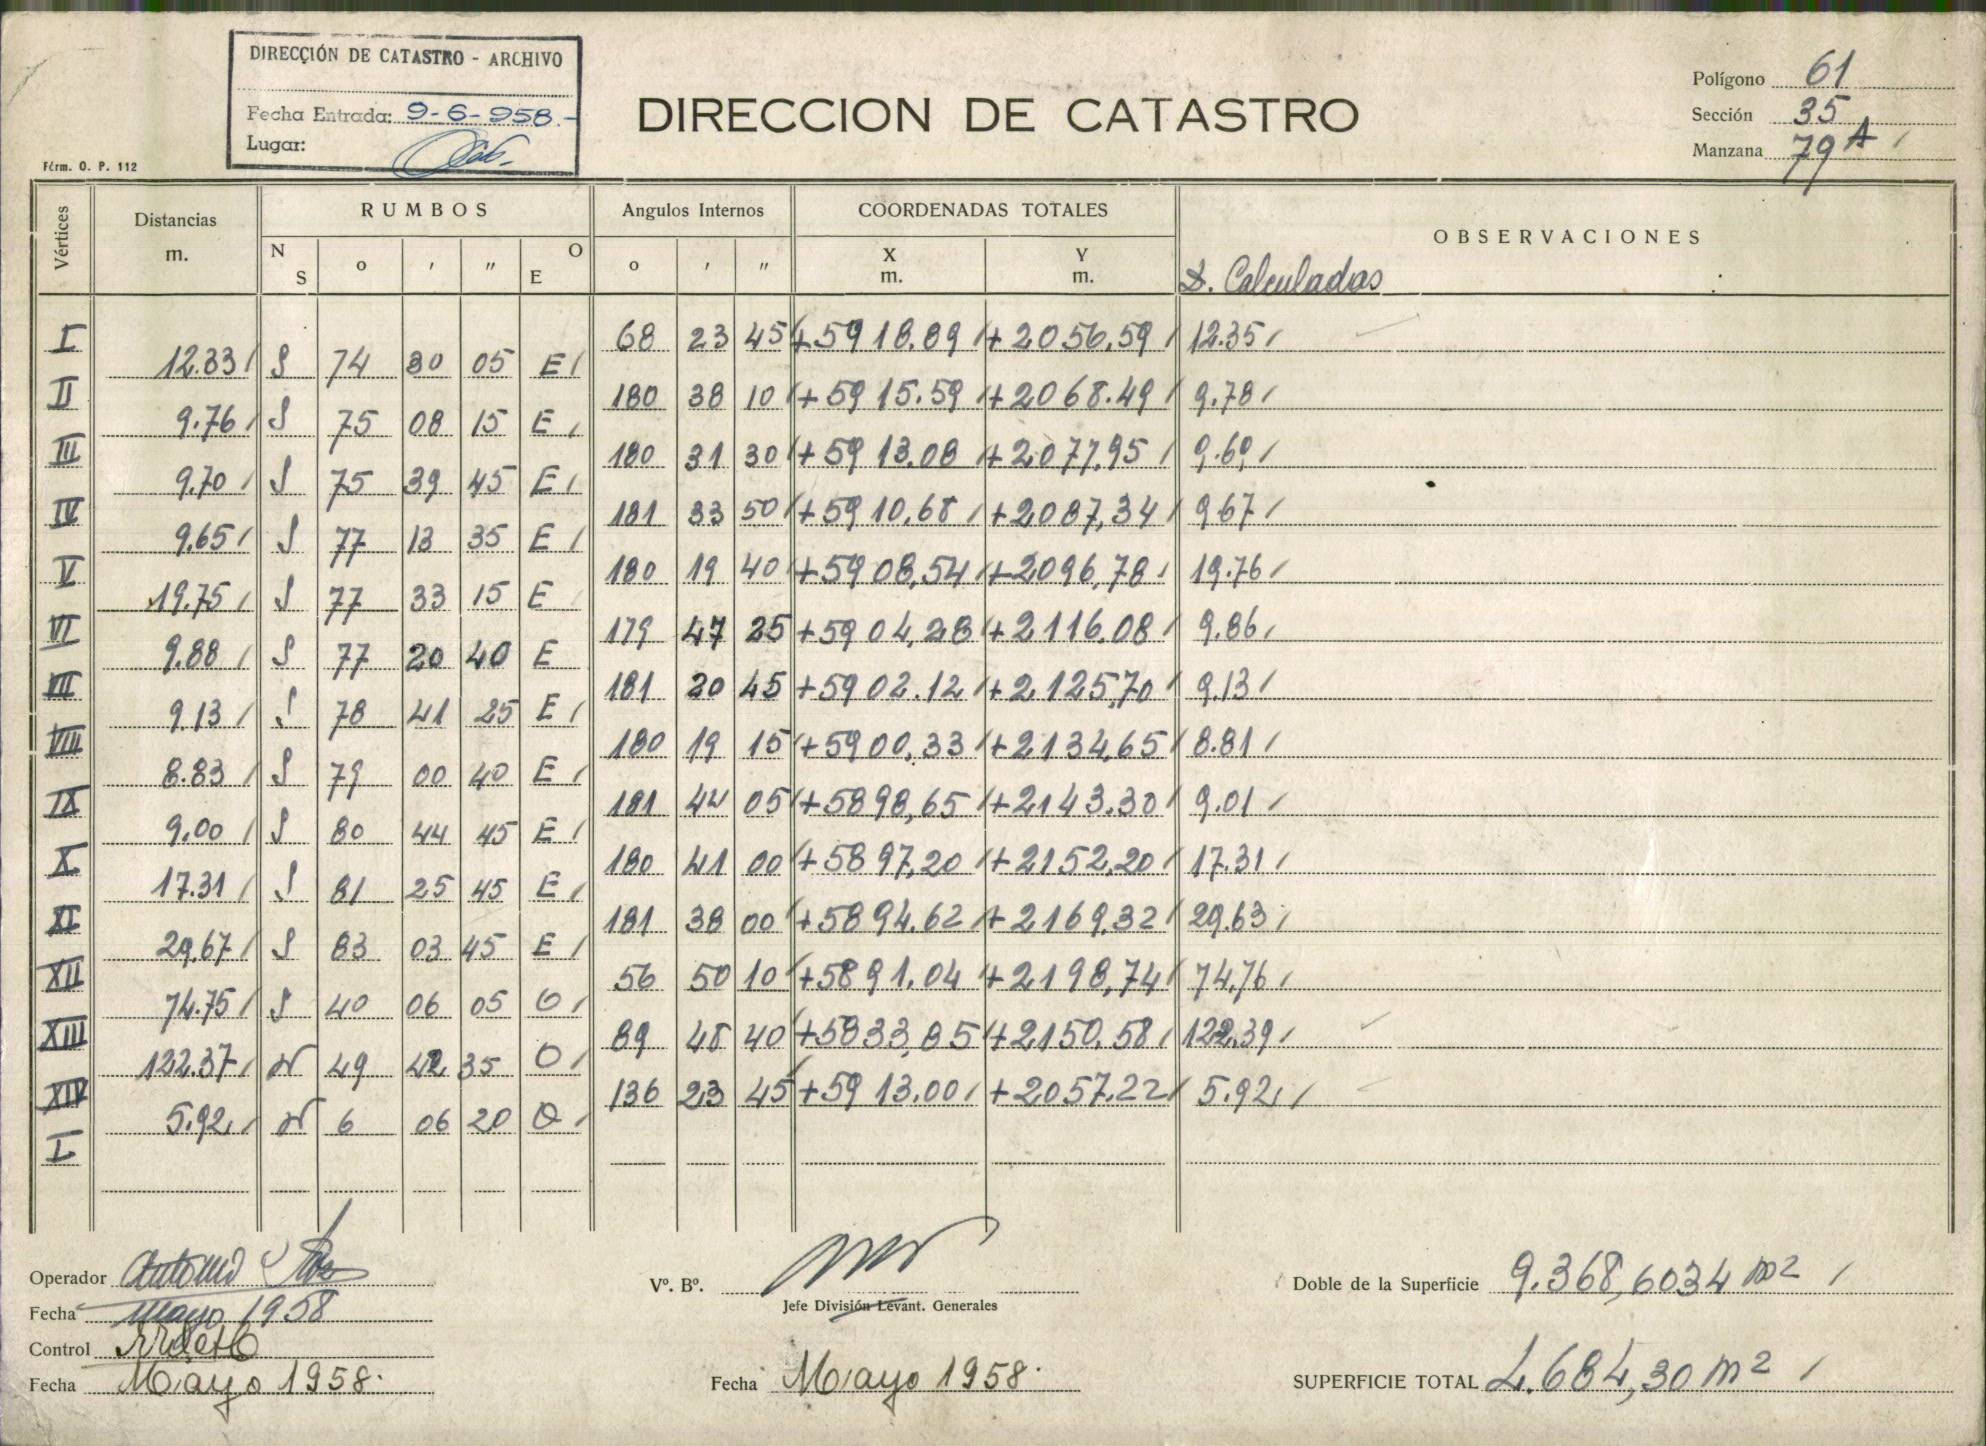 DIRECCIÓN DE CATASTRO - ARCHIVO
Fecha Entrada: 9-6-958.-
Lugar:
Fórm. O. P. 112
DIRECCION DE CATASTRO
Polígono 61
Sección 35
Manzana 79 A
Vértices Distancias m. RUMBOS Angulos Internos COORDENADAS TOTALES OBSERVACIONES
N S ° ' " O E ° ' " X m. Y m. D. Calculadas
I 68 23 45 +5918.89 +2056.59 12.35
12.33 S 74 30 05 E
II 180 38 10 +5915.59 +2068.49 9.78
9.76 S 75 08 15 E
III 180 31 30 +5913.08 +2077.95 9.69
9.70 S 75 39 45 E
IV 181 33 50 +5910,68 +2087,34 9.67
9.65 S 77 13 35 E
V 180 19 40 +5908,54 +2096,78 19.76
19.75 S 77 33 15 E
VI 179 47 25 +5904,28 +2116.08 9.86
9.88 S 77 20 40 E
VII 181 20 45 +5902.12 +2125,70 9.13
9.13 S 78 41 25 E
VIII 180 19 15 +5900,33 +2134,65 8.81
8.83 S 79 00 40 E
IX 181 44 05 +5898,65 +2143.30 9.01
9.00 S 80 44 45 E
X 180 41 00 +5897,20 +2152,20 17.31
17.31 S 81 25 45 E
XI 181 38 00 +5894.62 +2169,32 29.63
29.67 S 83 03 45 E
XII 56 50 10 +5891.04 +2198,74 74,76
74.75 S 40 06 05 O
XIII 89 48 40 +5833,85 +2150.58 122.39
122.37 N 49 42 35 O
XIV 136 23 45 +5913.00 +2057.22 5.92
5.92 N 6 06 20 O
I
Operador Antonio
Fecha Mayo 1958
Control
Fecha Mayo 1958.
Vº. Bº.
Jefe División Levant. Generales
Fecha Mayo 1958.
Doble de la Superficie 9.368,6034 m2
SUPERFICIE TOTAL 4.684,30 m2